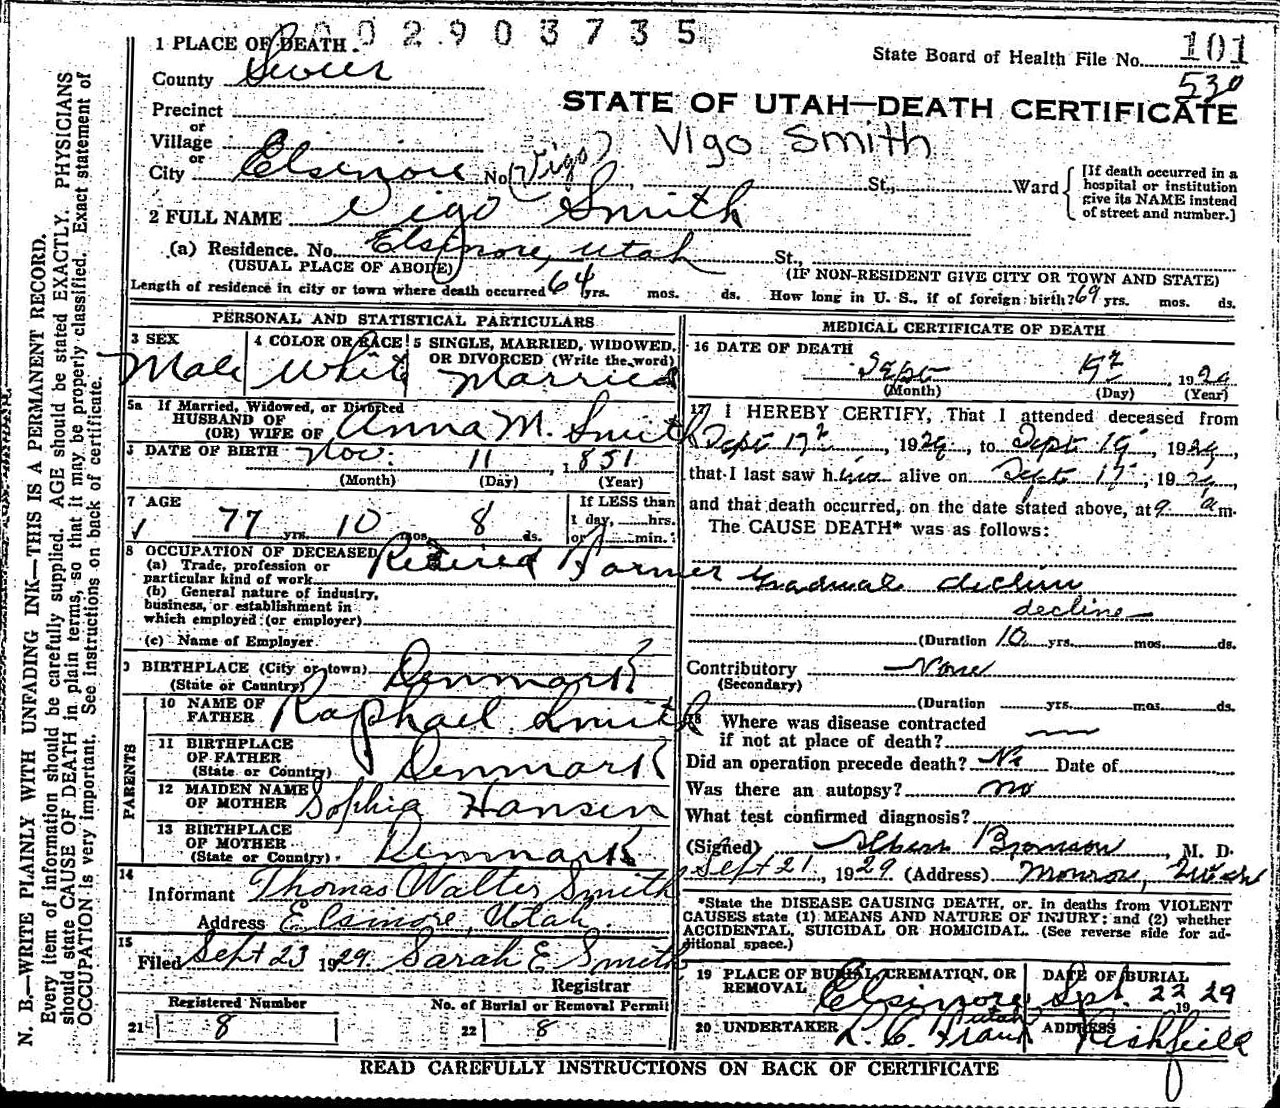 002903735
1 PLACE OF DEATH
State Board of Health File No. 101
County Sevier
530
STATE OF UTAH—DEATH CERTIFICATE
Precinct
or
Village
Vigo Smith
or
City Elsinore No. (Vigo) St., Ward
[If death occurred in a hospital or institution give its NAME instead of street and number.]
2 FULL NAME Vigo Smith
(a) Residence. No. Elsinore, Utah St.,
(USUAL PLACE OF ABODE) (IF NON-RESIDENT GIVE CITY OR TOWN AND STATE)
Length of residence in city or town where death occurred 64 yrs. mos. ds. How long in U. S., if of foreign birth? 69 yrs. mos. ds.
PERSONAL AND STATISTICAL PARTICULARS
3 SEX Male
4 COLOR OR RACE White
5 SINGLE, MARRIED, WIDOWED, OR DIVORCED (Write the word) Married
5a If Married, Widowed, or Divorced
HUSBAND OF
(OR) WIFE OF Anna M. Smith
DATE OF BIRTH Nov. 11, 1851
(Month) (Day) (Year)
7 AGE
77 yrs. 10 mos. 8 ds.
If LESS than
1 day, hrs.
or min.
8 OCCUPATION OF DECEASED Retired Farmer
(a) Trade, profession or
particular kind of work
(b) General nature of industry,
business, or establishment in
which employed (or employer)
(c) Name of Employer
BIRTHPLACE (City or town) Denmark
(State or Country)
PARENTS
10 NAME OF
FATHER Raphael Smith
11 BIRTHPLACE
OF FATHER Denmark
(State or Country)
12 MAIDEN NAME
OF MOTHER Sophia Hansen
13 BIRTHPLACE
OF MOTHER Denmark
(State or Country)
14
Informant Thomas Walter Smith
Address Elsinore, Utah.
15
Filed Sept 23 1929. Sarah E Smith
Registrar
Registered Number
21 8
No. of Burial or Removal Permit
22 8
MEDICAL CERTIFICATE OF DEATH
16 DATE OF DEATH
Sept 1929
(Month) (Day) (Year)
17 I HEREBY CERTIFY, That I attended deceased from
Sept 17, 1929, to Sept 19, 1929,
that I last saw him alive on Sept 17, 1929,
and that death occurred, on the date stated above, at 9 a m.
The CAUSE DEATH* was as follows:
Gradual decline
decline
(Duration 10 yrs. mos. ds.
Contributory None
(Secondary)
(Duration yrs. mos. ds.
18 Where was disease contracted
if not at place of death?
Did an operation precede death? No Date of
Was there an autopsy? no
What test confirmed diagnosis?
(Signed) Albert Bronson, M. D.
Sept 21, 1929 (Address) Monroe, Utah
*State the DISEASE CAUSING DEATH, or, in deaths from VIOLENT
CAUSES state (1) MEANS AND NATURE OF INJURY: and (2) whether
ACCIDENTAL, SUICIDAL OR HOMICIDAL. (See reverse side for ad-
ditional space.)
19 PLACE OF BURIAL, CREMATION, OR
REMOVAL Elsinore Utah
DATE OF BURIAL
Spt. 22 1929
20 UNDERTAKER L. C.
ADDRESS Richfield
READ CAREFULLY INSTRUCTIONS ON BACK OF CERTIFICATE
N. B.—WRITE PLAINLY WITH UNFADING INK—THIS IS A PERMANENT RECORD.
Every item of information should be carefully supplied. AGE should be stated EXACTLY. PHYSICIANS
should state CAUSE OF DEATH in plain terms, so that it may be properly classified. Exact statement of
OCCUPATION is very important. See instructions on back of certificate.